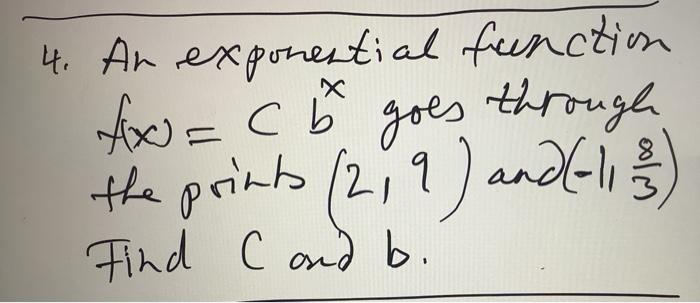 4. An exponential function
f(x) = C b^x goes through
the points (2, 9) and (-1, 8/3)
Find C and b.